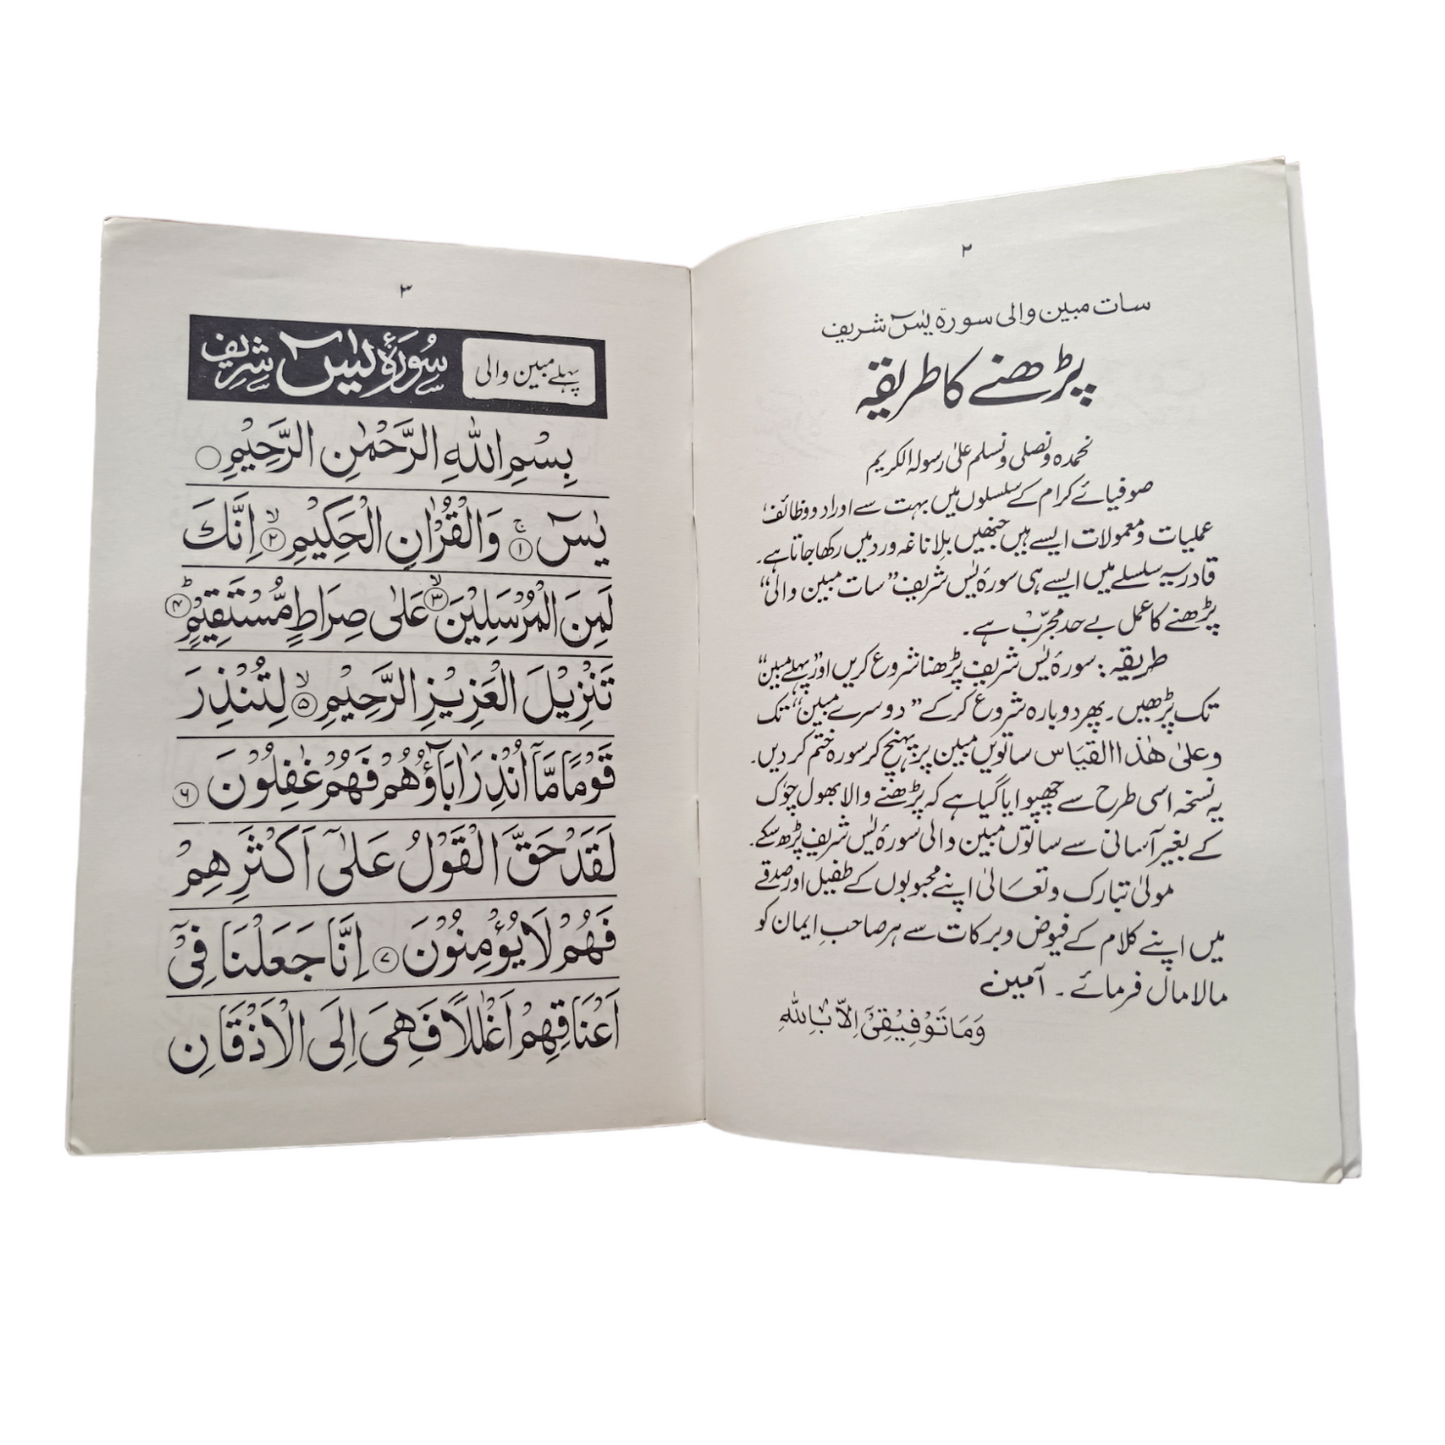 ۲
سات مبین والی سورۃ یٰسٓ شریف
پڑھنے کا طریقہ
نحمدہ و نصلی و نسلم علیٰ رسولہ الکریم
صوفیائے کرام کے سلسلوں میں بہت سے اوراد و وظائف،
عملیات و معمولات ایسے ہیں جنھیں بلا ناغہ ورد میں رکھا جاتا ہے۔
قادریہ سلسلے میں ایسے ہی سورۂ یٰس شریف ”سات مبین والی“
پڑھنے کا عمل بے حد مجرّب ہے۔
طریقہ: سورۂ یٰس شریف پڑھنا شروع کریں اور ”پہلے مبین“
تک پڑھیں۔ پھر دوبارہ شروع کر کے ”دوسرے مبین“ تک
وعلیٰ ھٰذا القیاس ساتویں مبین پر پہنچ کر سورہ ختم کر دیں۔
یہ نسخہ اسی طرح سے چھپوایا گیا ہے کہ پڑھنے والا بھول چوک
کے بغیر آسانی سے ساتوں مبین والی سورۂ یٰس شریف پڑھ سکے۔
مولیٰ تبارک و تعالیٰ اپنے محبوبوں کے طفیل اور صدقے
میں اپنے کلام کے فیوض و برکات سے ہر صاحبِ ایمان کو
مالا مال فرمائے۔ آمین
وَمَا تَوْفِیْقِیْٓ اِلَّا بِاللّٰہِ
۳
پہلے مبین والی سُورَۃُ یٰسٓ شریف
بِسْمِ اللّٰهِ الرَّحْمٰنِ الرَّحِيْمِ ○
يٰسٓ ۚ ۱ وَالْقُرْاٰنِ الْحَكِيْمِ ۙ ۲ اِنَّكَ
لَمِنَ الْمُرْسَلِيْنَ ۙ ۳ عَلٰى صِرَاطٍ مُّسْتَقِيْمٍ ؕ ۴
تَنْزِيْلَ الْعَزِيْزِ الرَّحِيْمِ ۙ ۵ لِتُنْذِرَ
قَوْمًا مَّآ اُنْذِرَ اٰبَآؤُهُمْ فَهُمْ غٰفِلُوْنَ ۶
لَقَدْ حَقَّ الْقَوْلُ عَلٰٓى اَكْثَرِهِمْ
فَهُمْ لَا يُؤْمِنُوْنَ ۷ اِنَّا جَعَلْنَا فِيْٓ
اَعْنَاقِهِمْ اَغْلٰلًا فَهِيَ اِلَى الْاَذْقَانِ